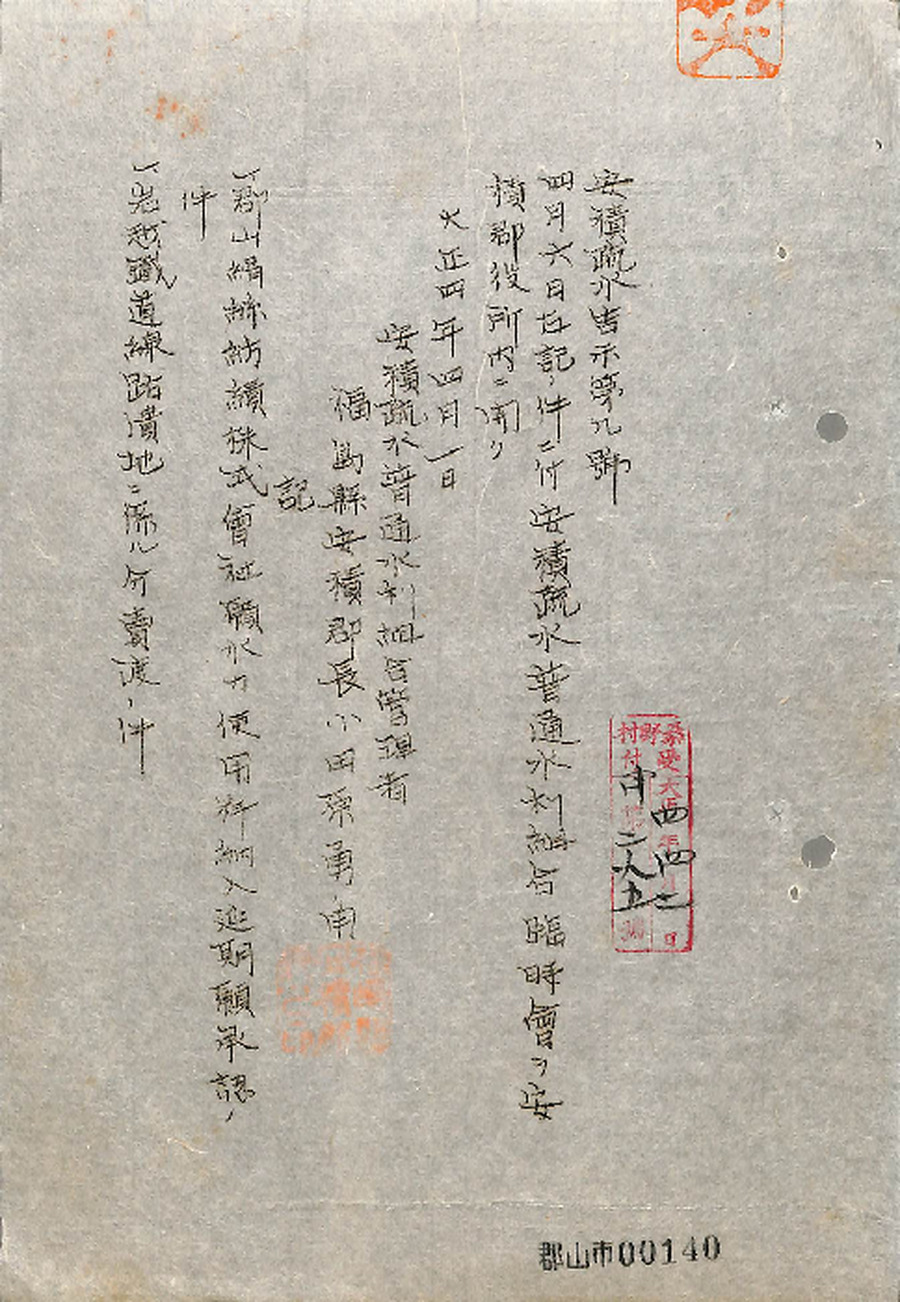 安積疏水告示第九號
四月六日左記ノ件ニ付安積疏水普通水利組合臨時會ヲ安
積郡役所内ニ開ク
大正四年四月一日
安積疏水普通水利組合管理者
福島縣安積郡長小田原勇
記
一郡山絹絲紡績株式會社願水力使用料納入延期願承認ノ
件
一岩越鐵道線路潰地ニ係ル分賣渡ノ件
桑野村
受付
大正四年四月二日
第二八五號
郡山市00140